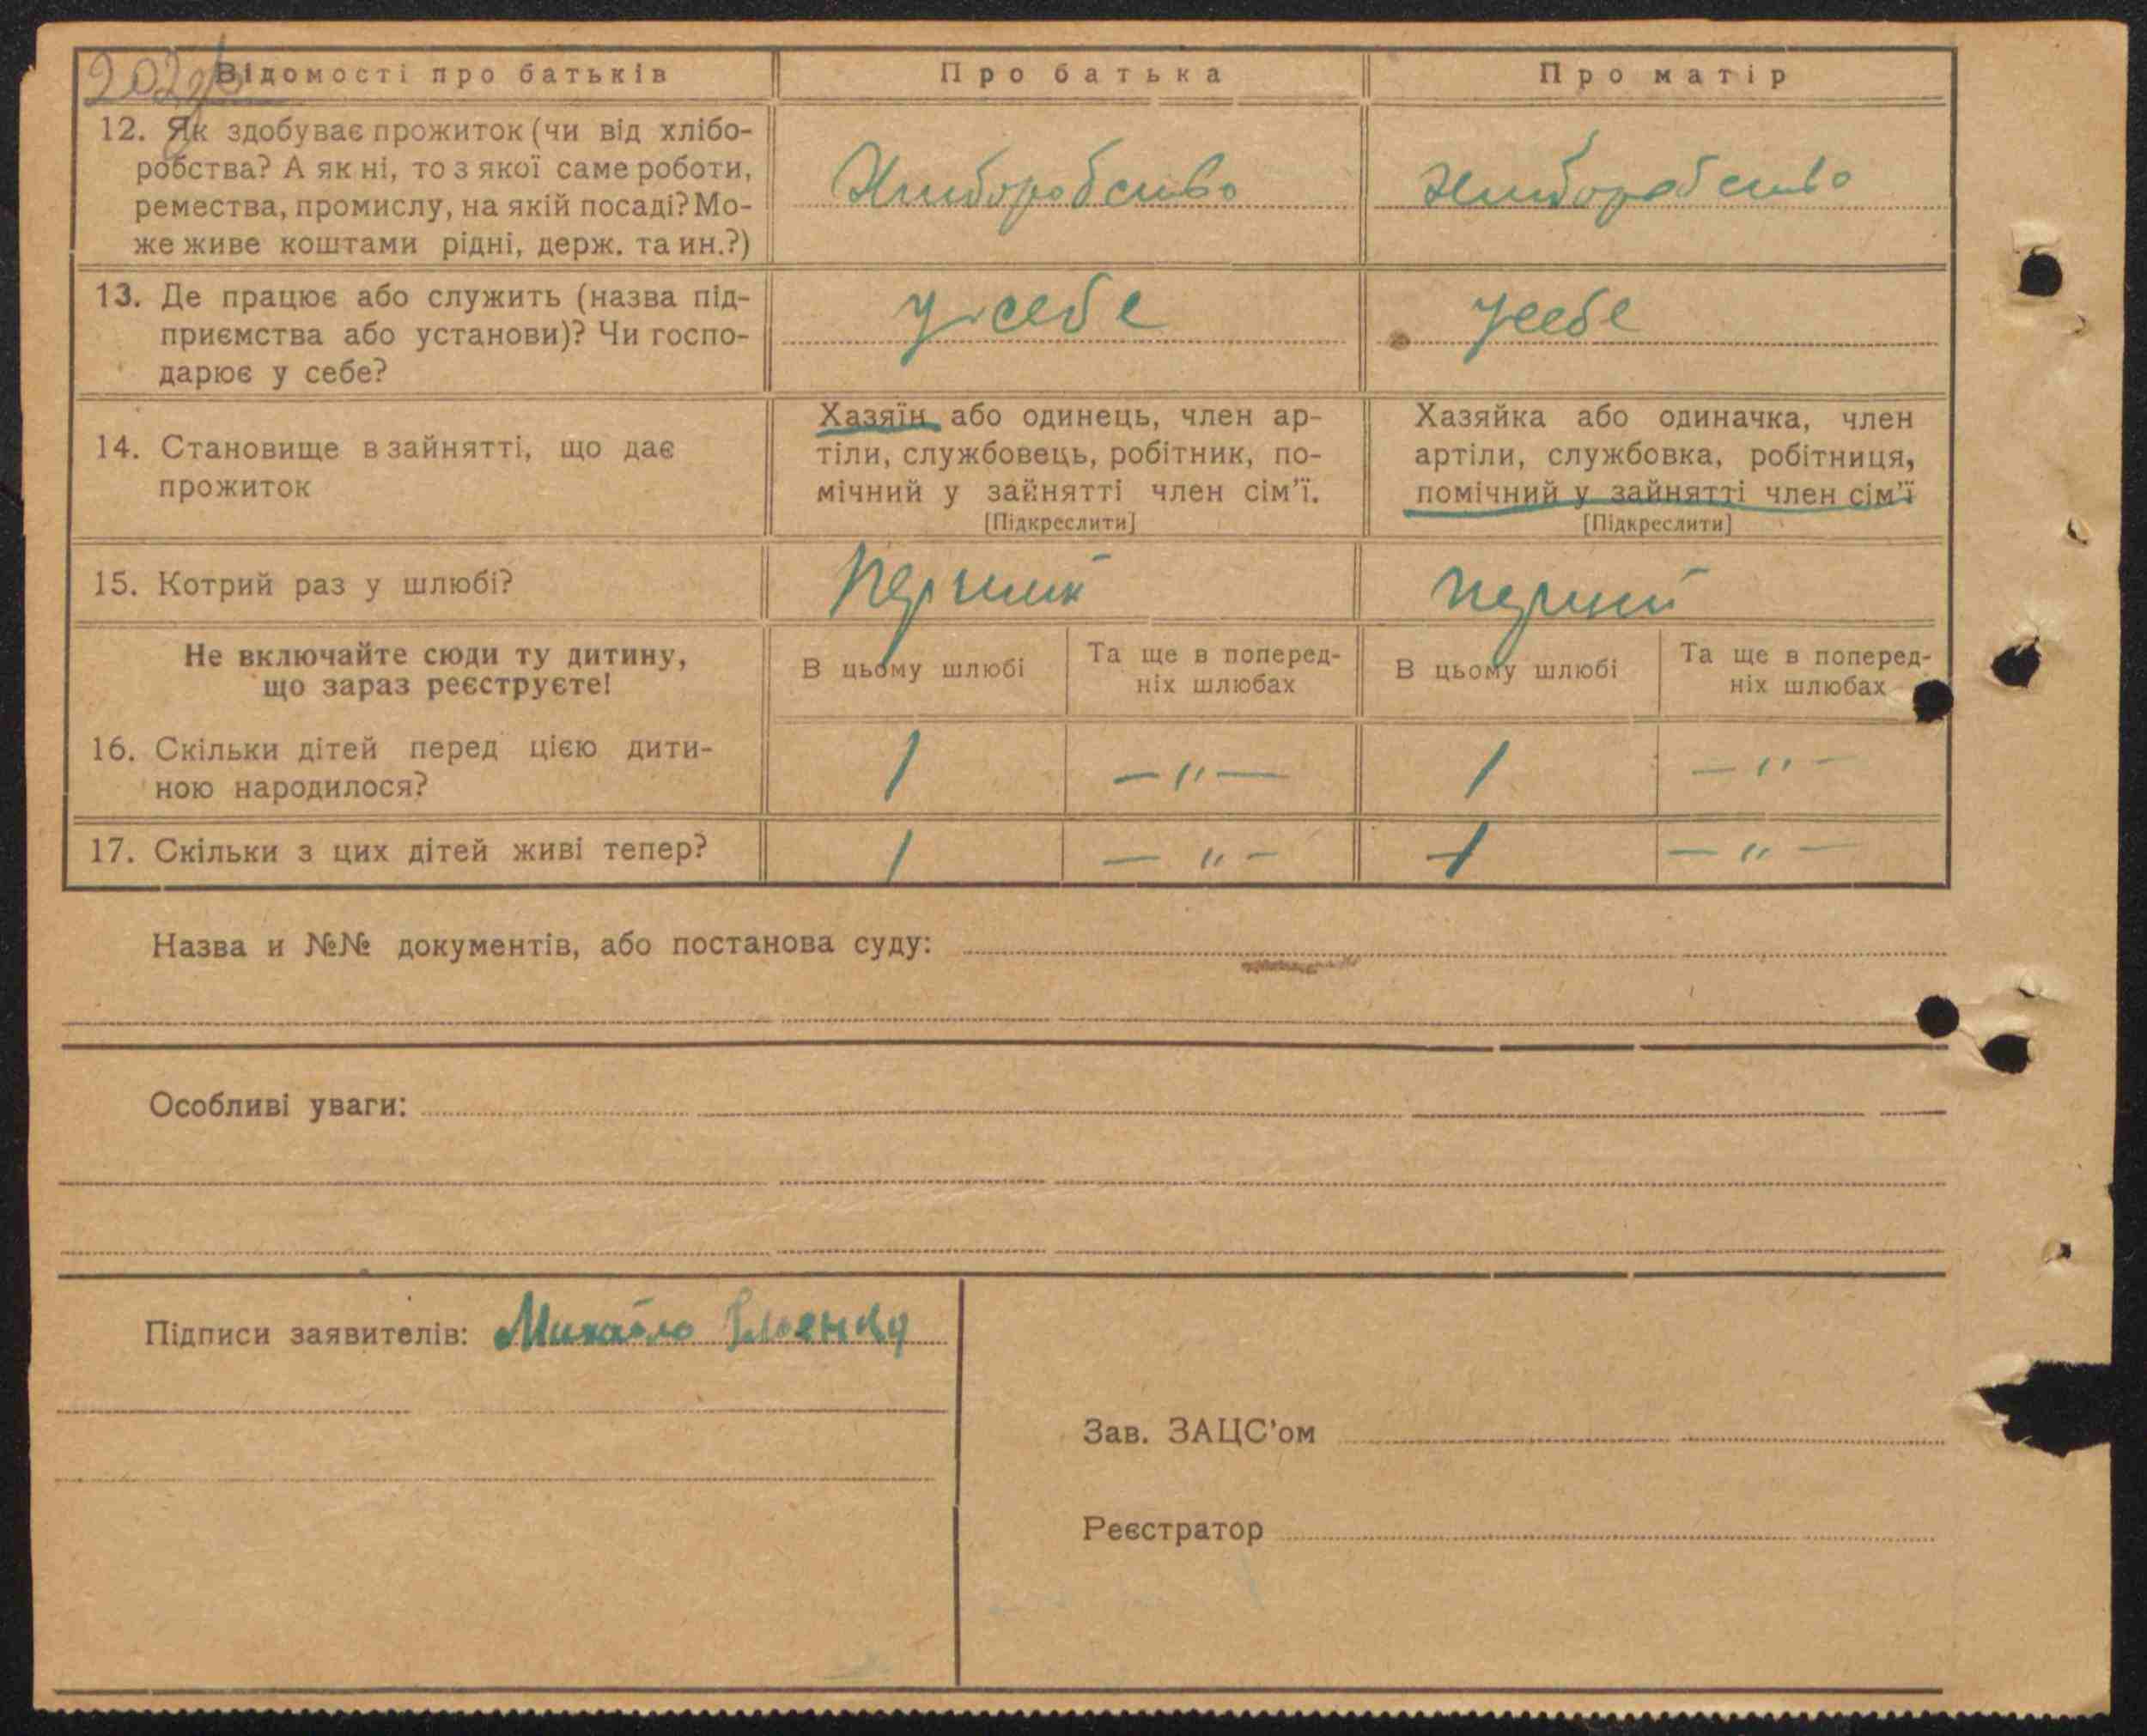 Відомості про батьків
Про батька
Про матір
12. Як здобуває прожиток (чи від хлібо-
робства? А як ні, то з якої саме роботи,
ремества, промислу, на якій посаді? Мо-
же живе коштами рідні, держ. та ин.?)
Хліборобство
Хліборобство
13. Де працює або служить (назва під-
приємства або установи)? Чи госпо-
дарює у себе?
у себе
у себе
14. Становище в зайнятті, що дає
прожиток
Хазяїн або одинець, член ар-
тіли, службовець, робітник, по-
мічний у зайнятті член сім'ї.
[Підкреслити]
Хазяйка або одиначка, член
артіли, службовка, робітниця,
помічний у зайнятті член сім'ї
[Підкреслити]
15. Котрий раз у шлюбі?
перший
перший
Не включайте сюди ту дитину,
що зараз реєструєте!
В цьому шлюбі
Та ще в поперед-
ніх шлюбах
В цьому шлюбі
Та ще в поперед-
ніх шлюбах
16. Скільки дітей перед цією дити-
ною народилося?
1
— " —
1
— " —
17. Скільки з цих дітей живі тепер?
1
— " —
1
— " —
Назва и №№ документів, або постанова суду:
Особливі уваги:
Підписи заявителів: Михайло
Зав. ЗАЦС'ом
Реєстратор